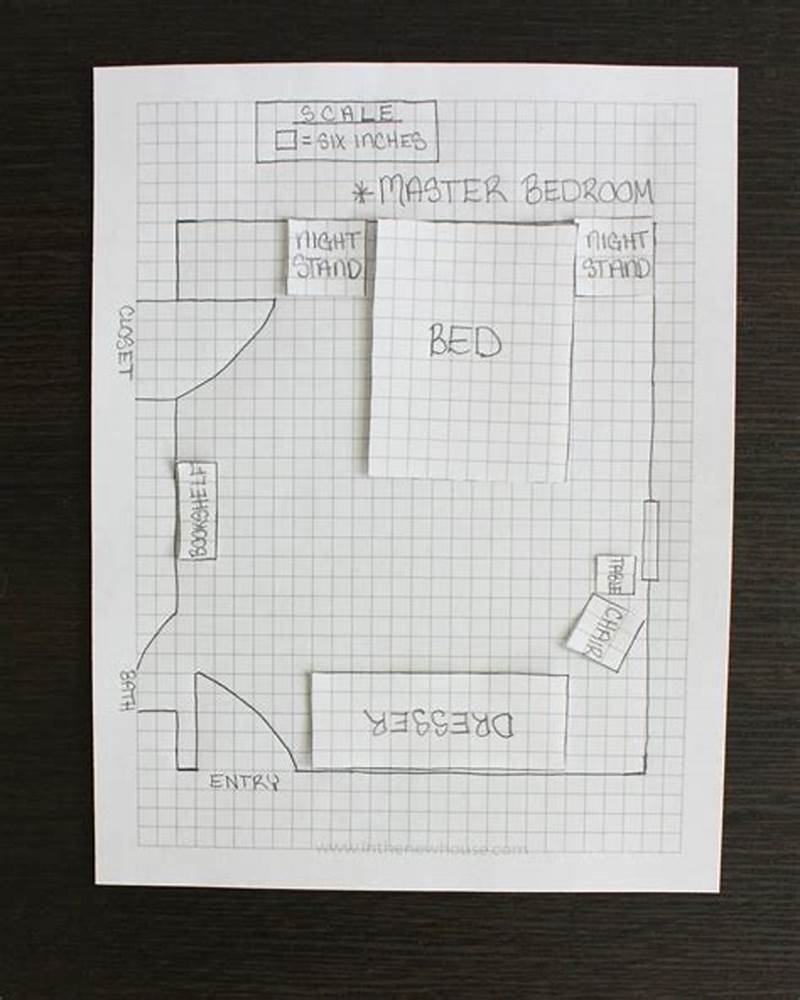 SCALE
= SIX INCHES
*MASTER BEDROOM
NIGHT
STAND
NIGHT
STAND
BED
CLOSET
BOOKSHELF
TABLE
CHAIR
BATH
DRESSER
ENTRY
www.inthenewhouse.com